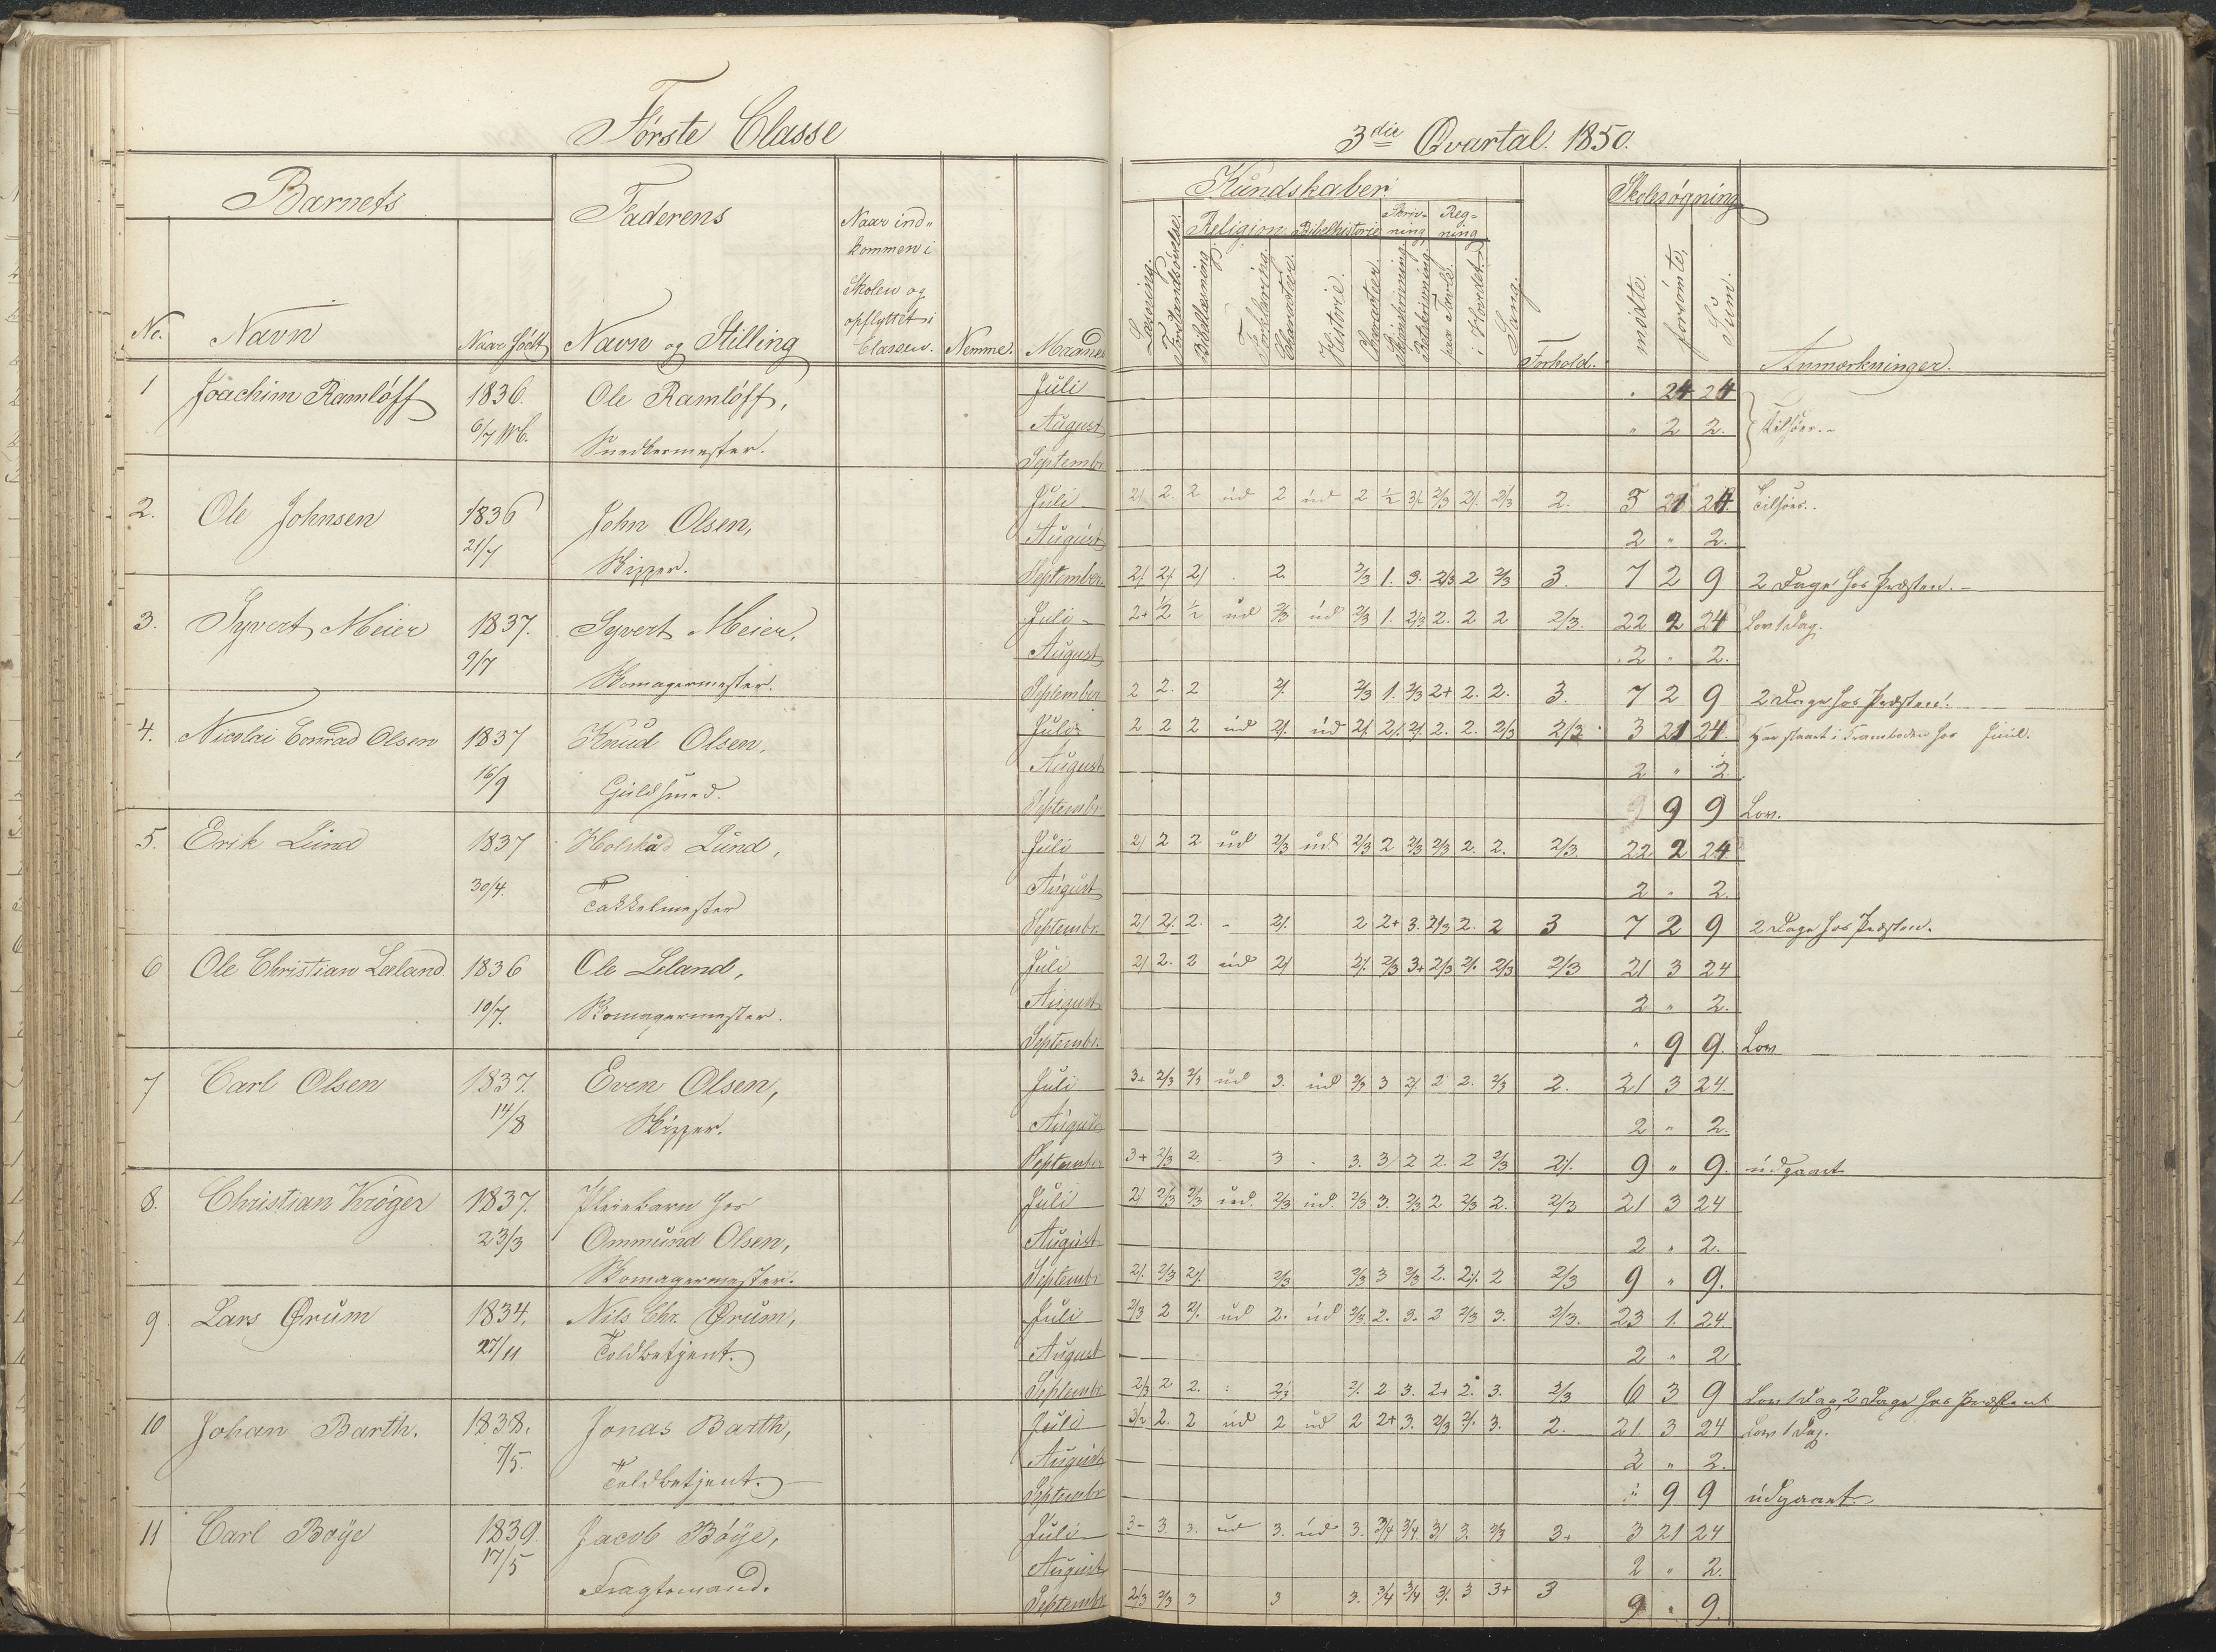 Første Classe
3die Qvartal 1850.
Barnets
Faderens
Naar ind-
kommen i
Skolen og
opflyttet i
Classen.
No.
Navn
Naar født
Navn og Stilling
Nemme.
Maaned
Kundskaber
Læsning.
Forstandsøvelse.
Religion
Bibellæsning
Forklaring.
Character.
Bibelhistorie
Historie.
Character.
Skriv-
ning
Reg-
ning
paa Tavle.
i Hovedet.
Sang.
Forhold.
Skolesøgning
mødte.
forsømte.
Sum.
Anmærkninger.
1 Joachim Ramløff 1836. Ole Ramløff, Juli " 24 24
6/7 August " 2 2. Tilsøes.-
Snedkermester. Septembr
2. Ole Johnsen 1836 John Olsen, Juli 2/. 2. 2 ud 2 ud 2 ½ 3/. 2/3 2/. 2/3 2. 3 21 24. Tilsøes..
21/7 August 2 " 2.
Skipper. September 2/. 2/. 2/. 2. 2/3 1. 3. 2/3 2 2/3 3. 7 2 9 2 Dage hos Præsten.-
3. Syvert Meier 1837. Syvert Meier, Juli 2+ ½ ½ ud 2/3 ud 2/3 1. 2/3 2. 2 2 2/3. 22 2 24 Lov 1 Dag.
9/7 August 2 " 2.
Skomagermester. September 2 2. 2 2/. 2/3 1. 2/3 2+ 2. 2. 3. 7 2 9 2 Dage hos Præsten.
4. Nicolai Conrad Olsen 1837 Knud Olsen, Juli 2 2 2 ud 2/. ud 2/. 2/. 2/. 2. 2. 2/3 2/3 3 21 24. Har staaet i Kramboden hos Juul.
16/9 August 2 " 2.
Guldsmed. Septembr 9 9 Lov.
5. Erik Lund 1837 Lund, Juli 2/. 2 2 ud 2/3 ud 2/3 2 2/3 2/3 2. 2. 2/3. 22 2 24
30/4. August 2 " 2.
Takkelmester Septembr. 2/. 2/. 2. - 2/. 2 2+ 3. 2/3 2. 2 3 7 2 9 2 Dage hos Præsten.
6 Ole Christian Leeland 1836 Ole Leland, Juli 2/. 2. 2 ud 2/. 2/. 2/3 3+ 2/3 2/. 2/3 2/3 21 3 24
10/7. August 2 " 2.
Skomagermester. Septembr. " 9 9. Lov
7 Carl Olsen 1837. Even Olsen, Juli 3+ 2/3 2/3 ud 3. ud 2/3 3 2/. 2 2. 2/3 2. 21 3 24.
14/8 August 2 " 2.
Skipper. September 3+ 2/3 2 3 3. 3/ 2 2. 2 2/3 2/. 9 " 9. udgaaet
8. Christian Krøger 1837. Pleiebarn hos Juli 2/. 2/3 2/3 ud. 2/3 ud. 2/3 3. 2/3 2 2/3 2. 2/3 21 3 24
23/3 Ommund Olsen, August 2 " 2.
Skomagermester. Septembr 2/. 2/3 2/. 2/3 2/3 3 2/3 2. 2/. 2 2/3 9 " 9.
9 Lars Ørum 1834. Nils Chr. Ørum, Juli 2/3 2 2/. ud 2. ud 2/3 2. 3. 2 2/3 3. 2/3. 23 1. 24.
27/11 Toldbetjent. August 2 " 2
Septembr 2/3 2 2. 2/3 2/. 2 3. 2+ 2. 3. 2/3 6 3 9 Lov 1 Dag, 2 Dage hos Præsten
10 Johan Barth. 1838. Jonas Barth, Juli 3/2 2. 2 ud 2 ud 2 2+ 3. 2/3 2/. 3. 2. 21. 3 24 Lov 1 Dag.
7/5. August 2 " 2.
Toldbetjent. Septembr " 9 9 udgaaet.
11 Carl Bøÿe 1839. Jacob Bøÿe, Juli 3- 3. 3. ud 3. ud 3. 3/4 3/4 3/ 3. 2/3 3+ 3 21 24
17/5 August 2 " 2.
Fragtemand. Septembr 2/3 2/3 3 3 3. 3/4 3/4 3/. 3 3+ 3 9 " 9.